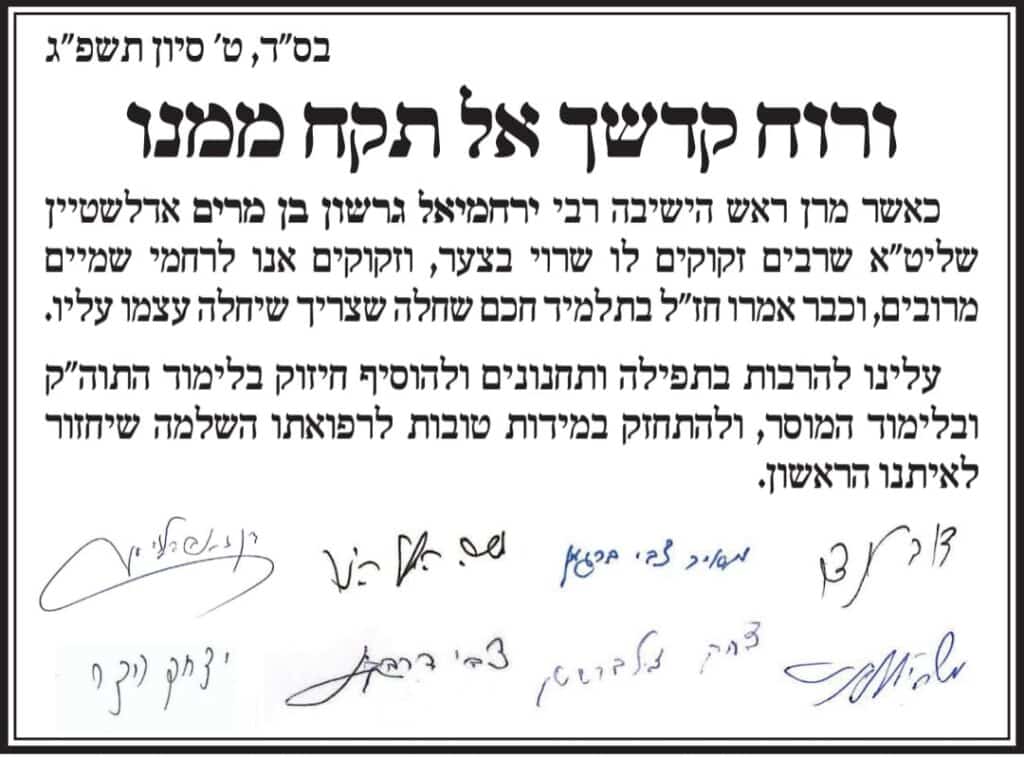 בס"ד, ט' סיון תשפ"ג
ורוח קדשך אל תקח ממנו
כאשר מרן ראש הישיבה רבי ירחמיאל גרשון בן מרים אדלשטיין
שליט"א שרבים זקוקים לו שרוי בצער, וזקוקים אנו לרחמי שמיים
מרובים, וכבר אמרו חז"ל בתלמיד חכם שחלה שצריך שיחלה עצמו עליו.
עלינו להרבות בתפילה ותחנונים ולהוסיף חיזוק בלימוד התוה"ק
ובלימוד המוסר, ולהתחזק במידות טובות לרפואתו השלמה שיחזור
לאיתנו הראשון.
דוב לנדו
מאיר צבי ברגמן
יצחק זילברשטיין
צבי
יצחק